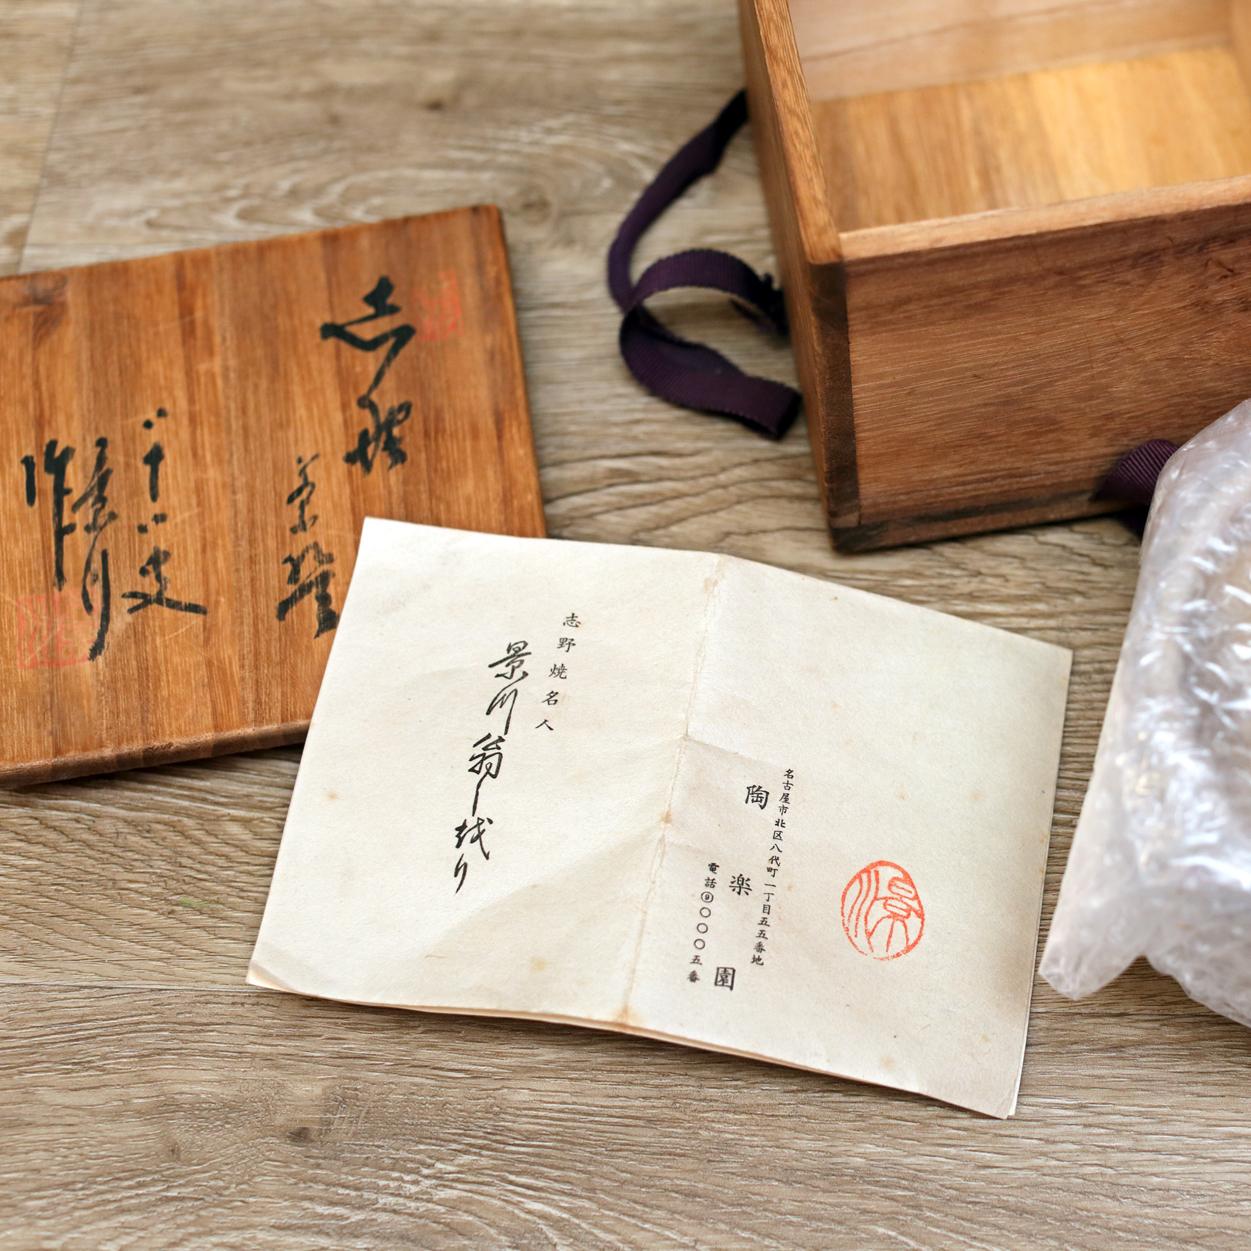 志野
茶碗
八十八叟
景川
作
志野焼名人
景川翁しをり
名古屋市北区八代町一丁目五五番地
陶楽園
電話〇〇〇五番